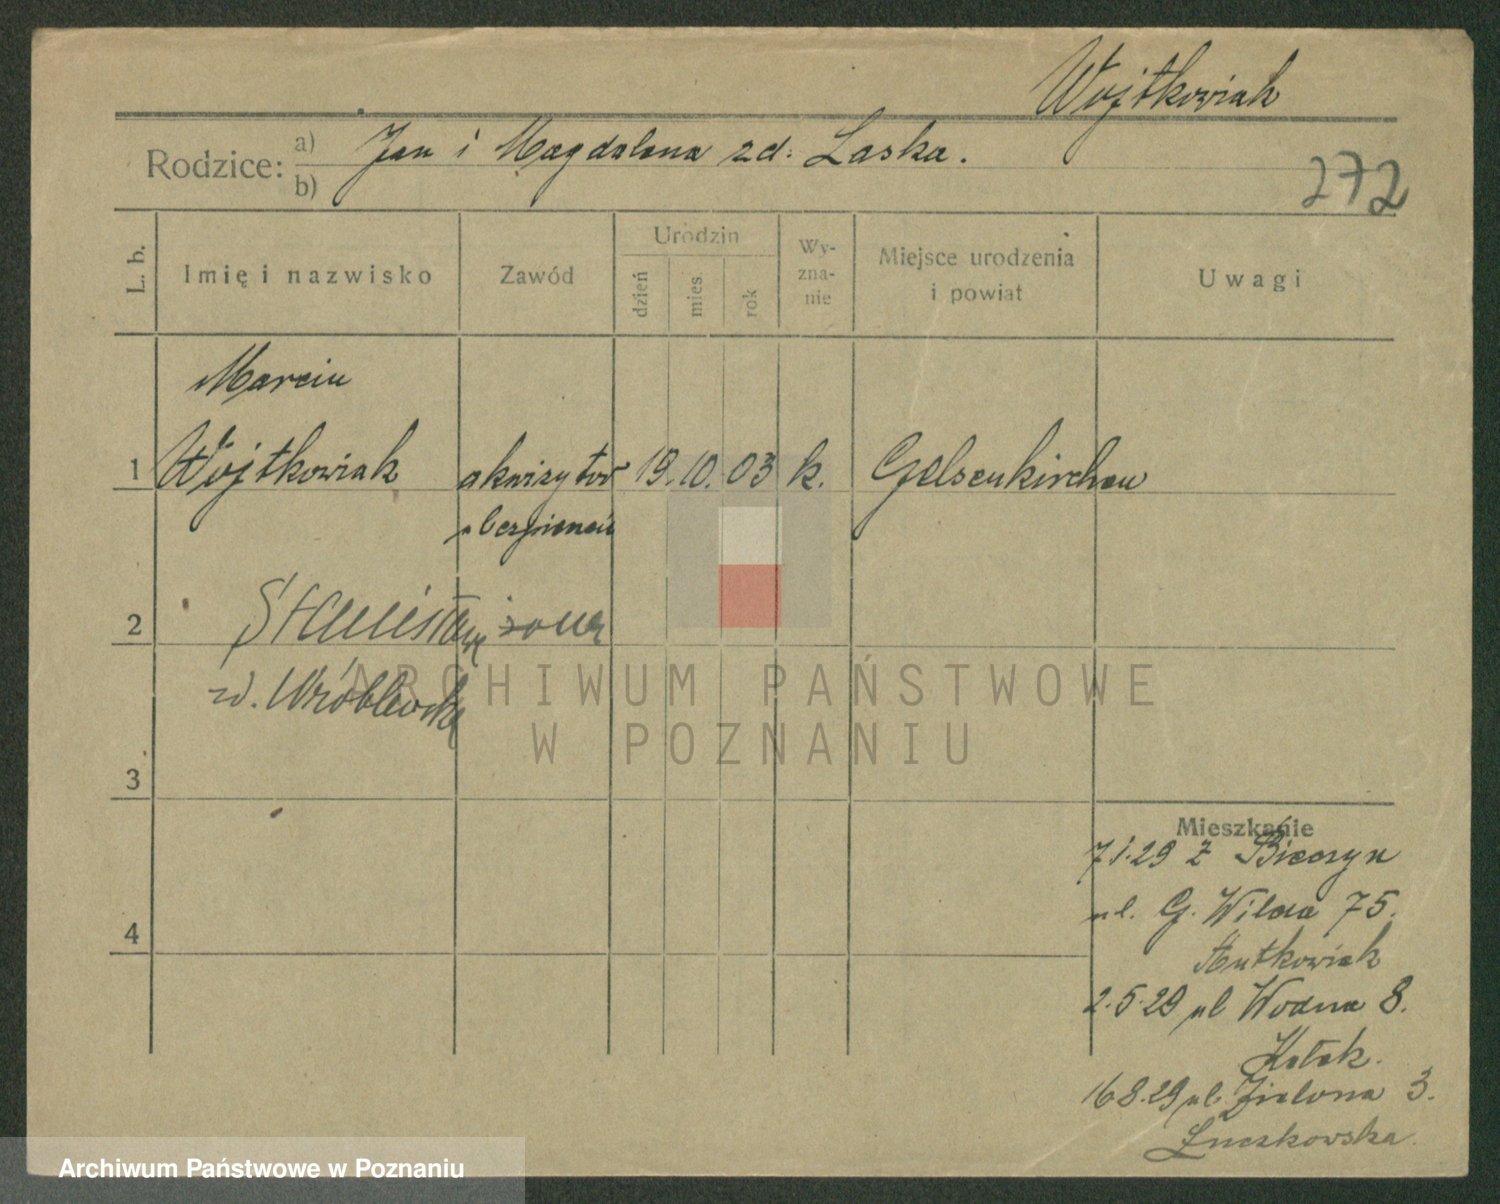 Wojtkowiak
Rodzice: a) Jan i Magdalena zd. Laska.
b)
272
L. b.
Imię i nazwisko
Zawód
Urodzin
dzień
mies.
rok
Wy-
zna-
nie
Miejsce urodzenia
i powiat
Uwagi
Marcin
1 Wojtkowiak akwizytor 19. 10. 03 k. Gelsenkirchen
ubezpieczeń
2 Stanisława żona
zd. Wróblewska
ARCHIWUM PAŃSTWOWE
W POZNANIU
3
Mieszkanie
7.1.29 z
ul. G. Wilda 75.
4
Rutkowiak
2.5.29 ul Wodna 8.
16.8.29 ul. Zielona 3.
Łuczkowska.
Archiwum Państwowe w Poznaniu